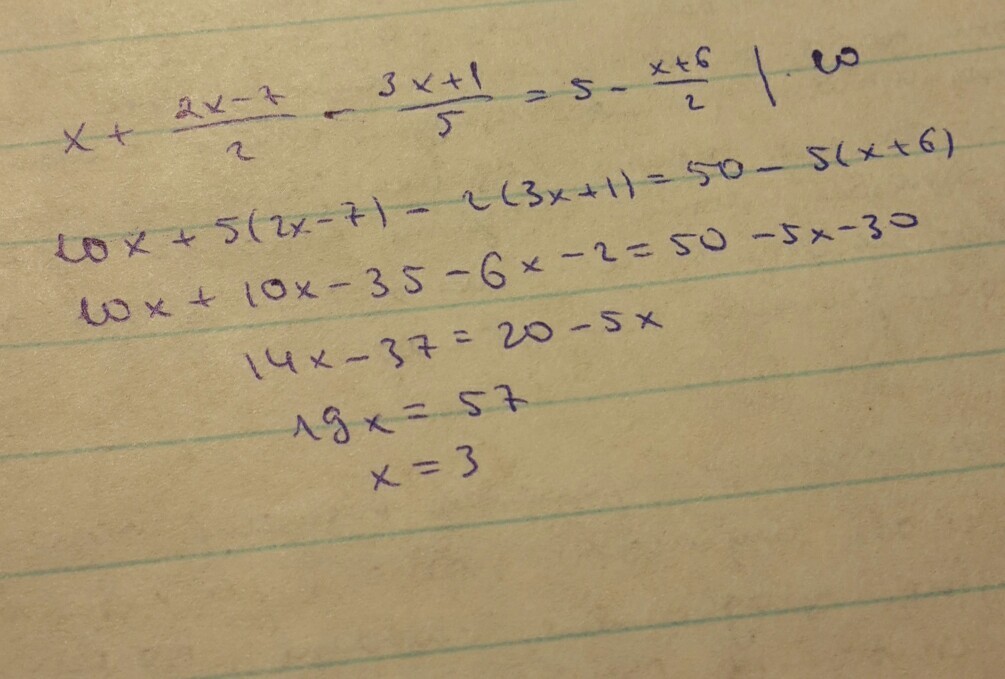 x + \frac{2x-7}{2} - \frac{3x+1}{5} = 5 - \frac{x+6}{2} / · 10
10x + 5(2x-7) - 2(3x+1) = 50 - 5(x+6)
10x + 10x - 35 - 6x - 2 = 50 - 5x - 30
14x - 37 = 20 - 5x
19x = 57
x = 3